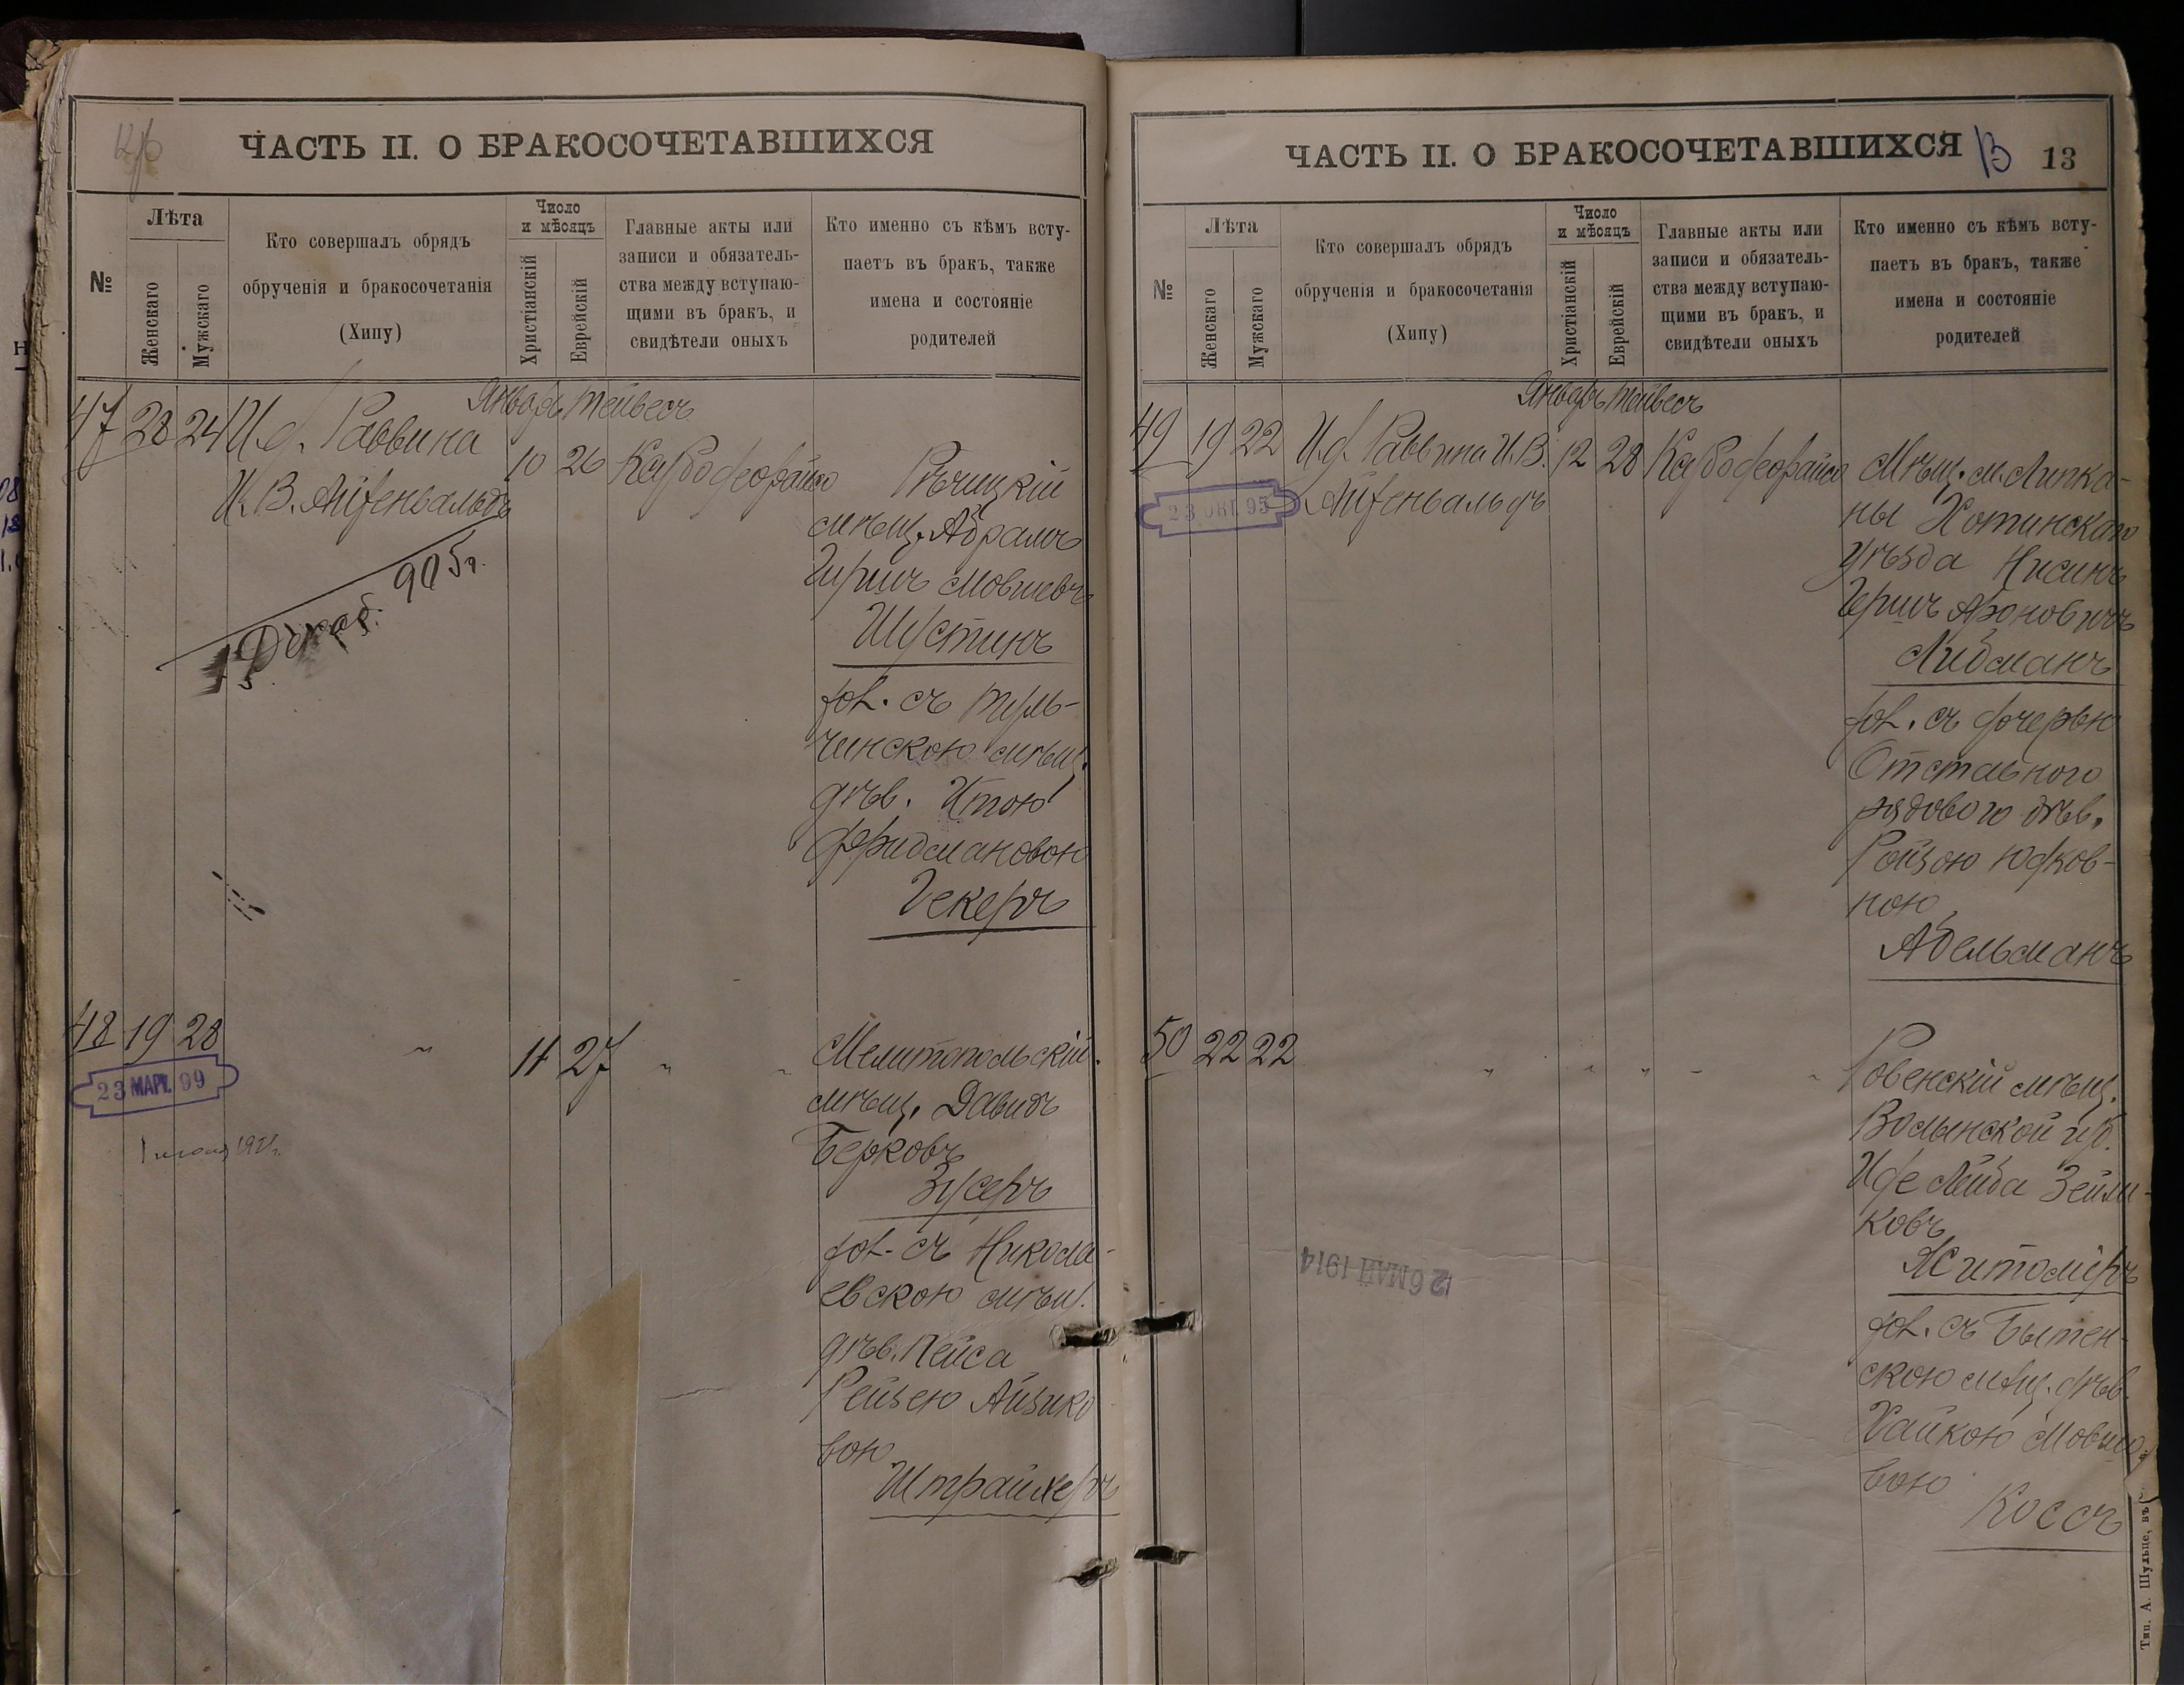 ЧАСТЬ II. О БРАКОСОЧЕТАВШИХСЯ
№
Лѣта
Женскаго
Мужскаго
Кто совершалъ обрядъ
обрученія и бракосочетанія
(Хипу)
Число
и мѣсяцъ
Христіанскій
Еврейскій
Главные акты или
записи и обязатель-
ства между вступаю-
щими въ бракъ, и
свидѣтели оныхъ
Кто именно съ кѣмъ всту-
паетъ въ бракъ, также
имена и состояніе
родителей
Январь Тейвесъ
47 28 24 И.д. Раввина
И. В. Айзенвальдъ
10 26
Рѣчицкій
мѣщ. Абрамъ
Гиршъ Мовшевъ
Шустинъ
дѣв. Итою
Фридмановою
Гекеръ
Декаб. 905 г.
48 19 28 " 11 27 " "
23 МАР. 99
Мелитопольскій
мѣщ. Давидъ
Берковъ
Зусеръ
съ Никола-
евскою мѣщ.
дѣв. Пейса
Рейзею Айзико
вою
Штрайхеръ
ЧАСТЬ II. О БРАКОСОЧЕТАВШИХСЯ 13
№
Лѣта
Женскаго
Мужскаго
Кто совершалъ обрядъ
обрученія и бракосочетанія
(Хипу)
Число
и мѣсяцъ
Христіанскій
Еврейскій
Главные акты или
записи и обязатель-
ства между вступаю-
щими въ бракъ, и
свидѣтели оныхъ
Кто именно съ кѣмъ всту-
паетъ въ бракъ, также
имена и состояніе
родителей
Январь Тейвесъ
49 19 22 И.д. Раввина И. В.
Айзенвальдъ
12 28
23 ОКТ. 95
Мѣщ. м. Липка-
ны Хотинскаго
уѣзда Нисинъ
Гершъ Ароновичъ
Либманъ
съ дочерью
Отставного
рядового дѣв.
Ройзою Юдков-
ною
Адельманъ
50 22 22 " " " "
Ровенскій мѣщ.
Волынской губ.
Иде Лейба Зейли-
ковъ
Житоміръ
съ Бытен-
скою мѣщ. дѣв.
Хайкою Мовшо-
вою
Коссъ
26 МАЙ 1914
Тип. А. Шульце, въ